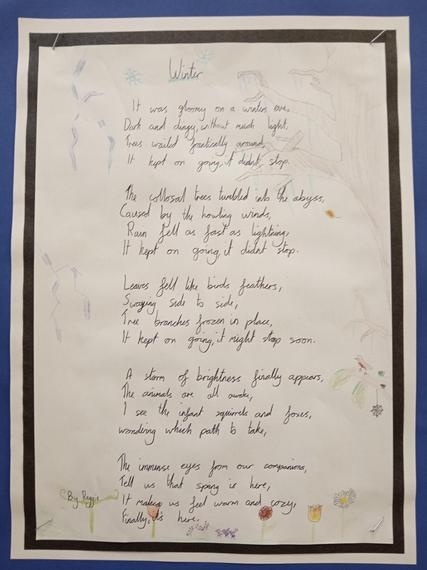 Winter
It was gloomy on a winters eve,
Dark and dingy, without much light,
Trees waited frantically around,
It kept on going, it didnt stop.
The collosal trees tumbled into the abyss,
Caused by the howling winds,
Rain fell as fast as lightning,
It kept on going, it didnt stop.
Leaves fell like birds feathers,
Swaying side to side,
Tree branches frozen in place,
It kept on going, it might stop soon.
A storm of brightness finally appears,
The animals are all awake,
I see the infant squirrels and foxes,
wondering which path to take,
The immense eyes from our companions,
Tell us that spring is here,
It makes us feel warm and cozy,
Finally, it's here.
By Reggie